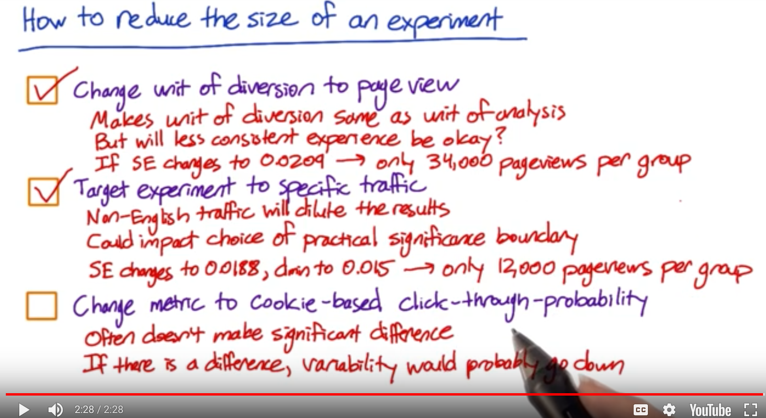 How to reduce the size of an experiment
Change unit of diversion to page view
Makes unit of diversion same as unit of analysis
But will less consistent experience be okay?
If SE changes to 0.0209 → only 34,000 pageviews per group
Target experiment to specific traffic
Non-English traffic will dilute the results
Could impact choice of practical significance boundary
SE changes to 0.0188, dmin to 0.015 → only 12,000 pageviews per group
Change metric to cookie-based click-through-probability
Often doesn't make significant difference
If there is a difference, variability would probably go down
2:28 / 2:28
CC
YouTube